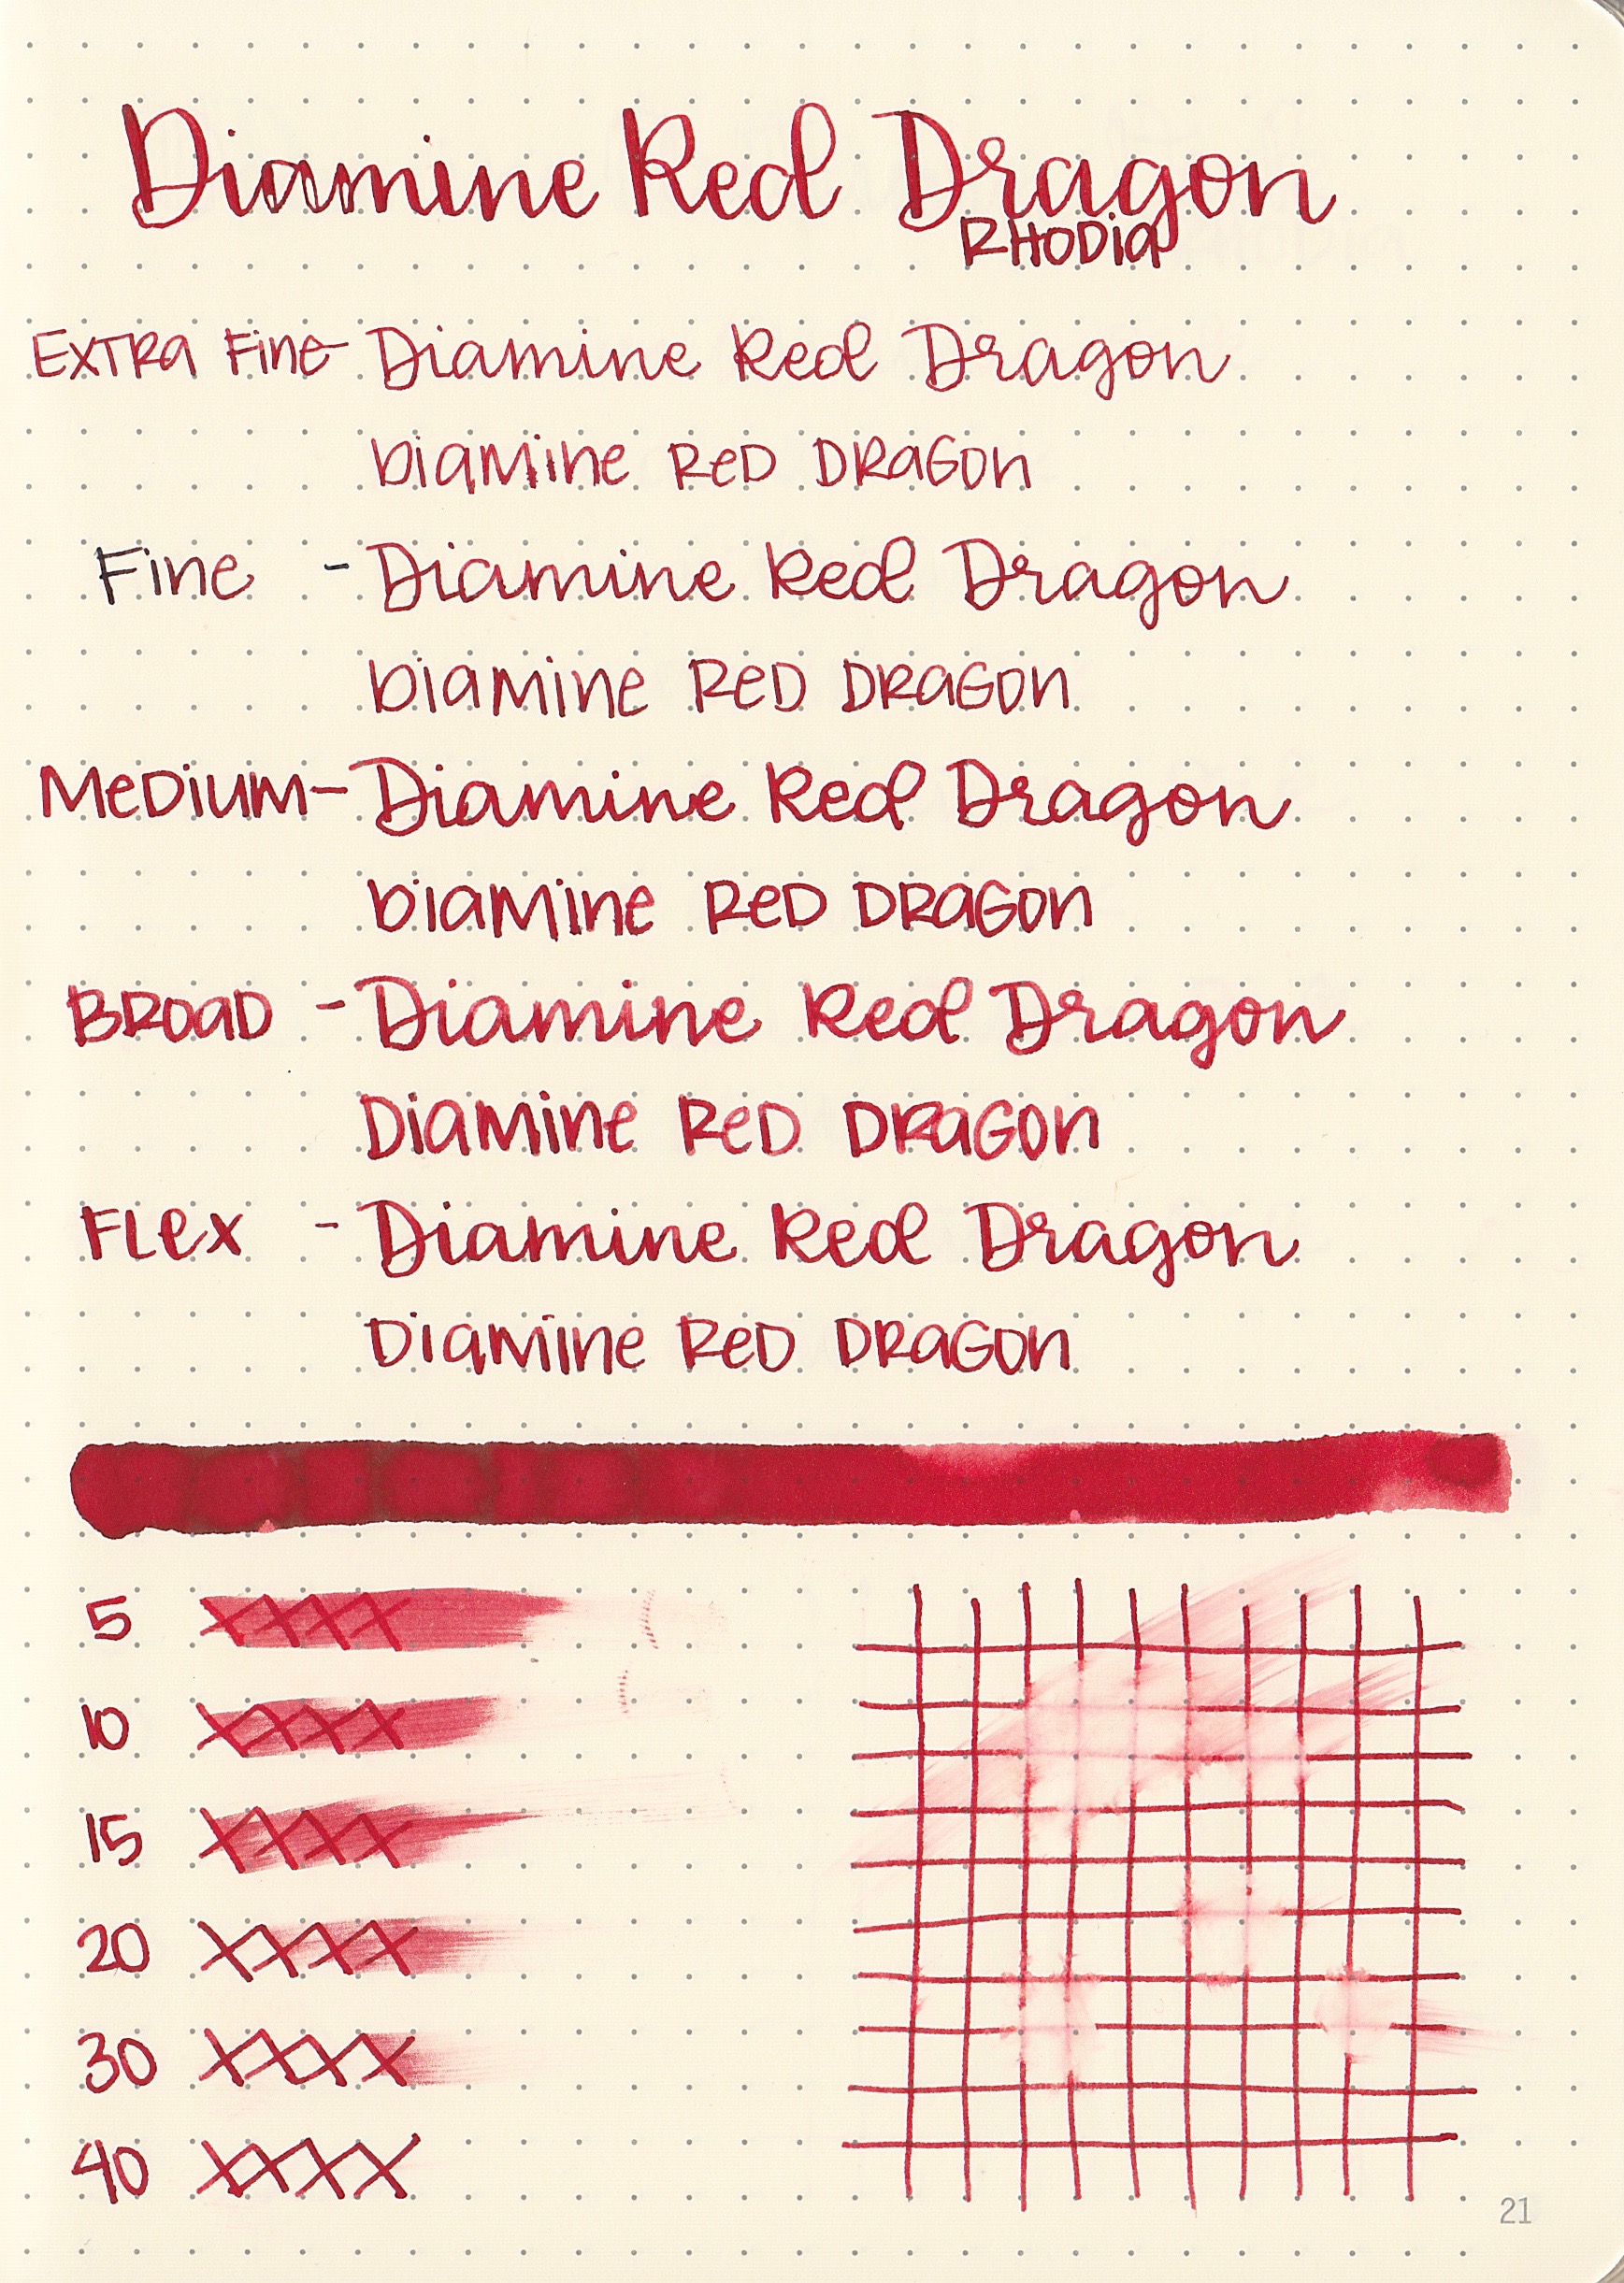 Diamine Red Dragon
RHODIA
EXTRA Fine - Diamine Red Dragon
DiAMine ReD DRAGOn
Fine - Diamine Red Dragon
DiAMine ReD DRAGOn
MeDiUM - Diamine Red Dragon
DiAMine ReD DRAGOn
BROAD - Diamine Red Dragon
DiAMine ReD DRAGOn
FLex - Diamine Red Dragon
DiAMine ReD DRAGOn
5 XXXX
10 XXXX
15 XXXX
20 XXXX
30 XXXX
40 XXXX
21